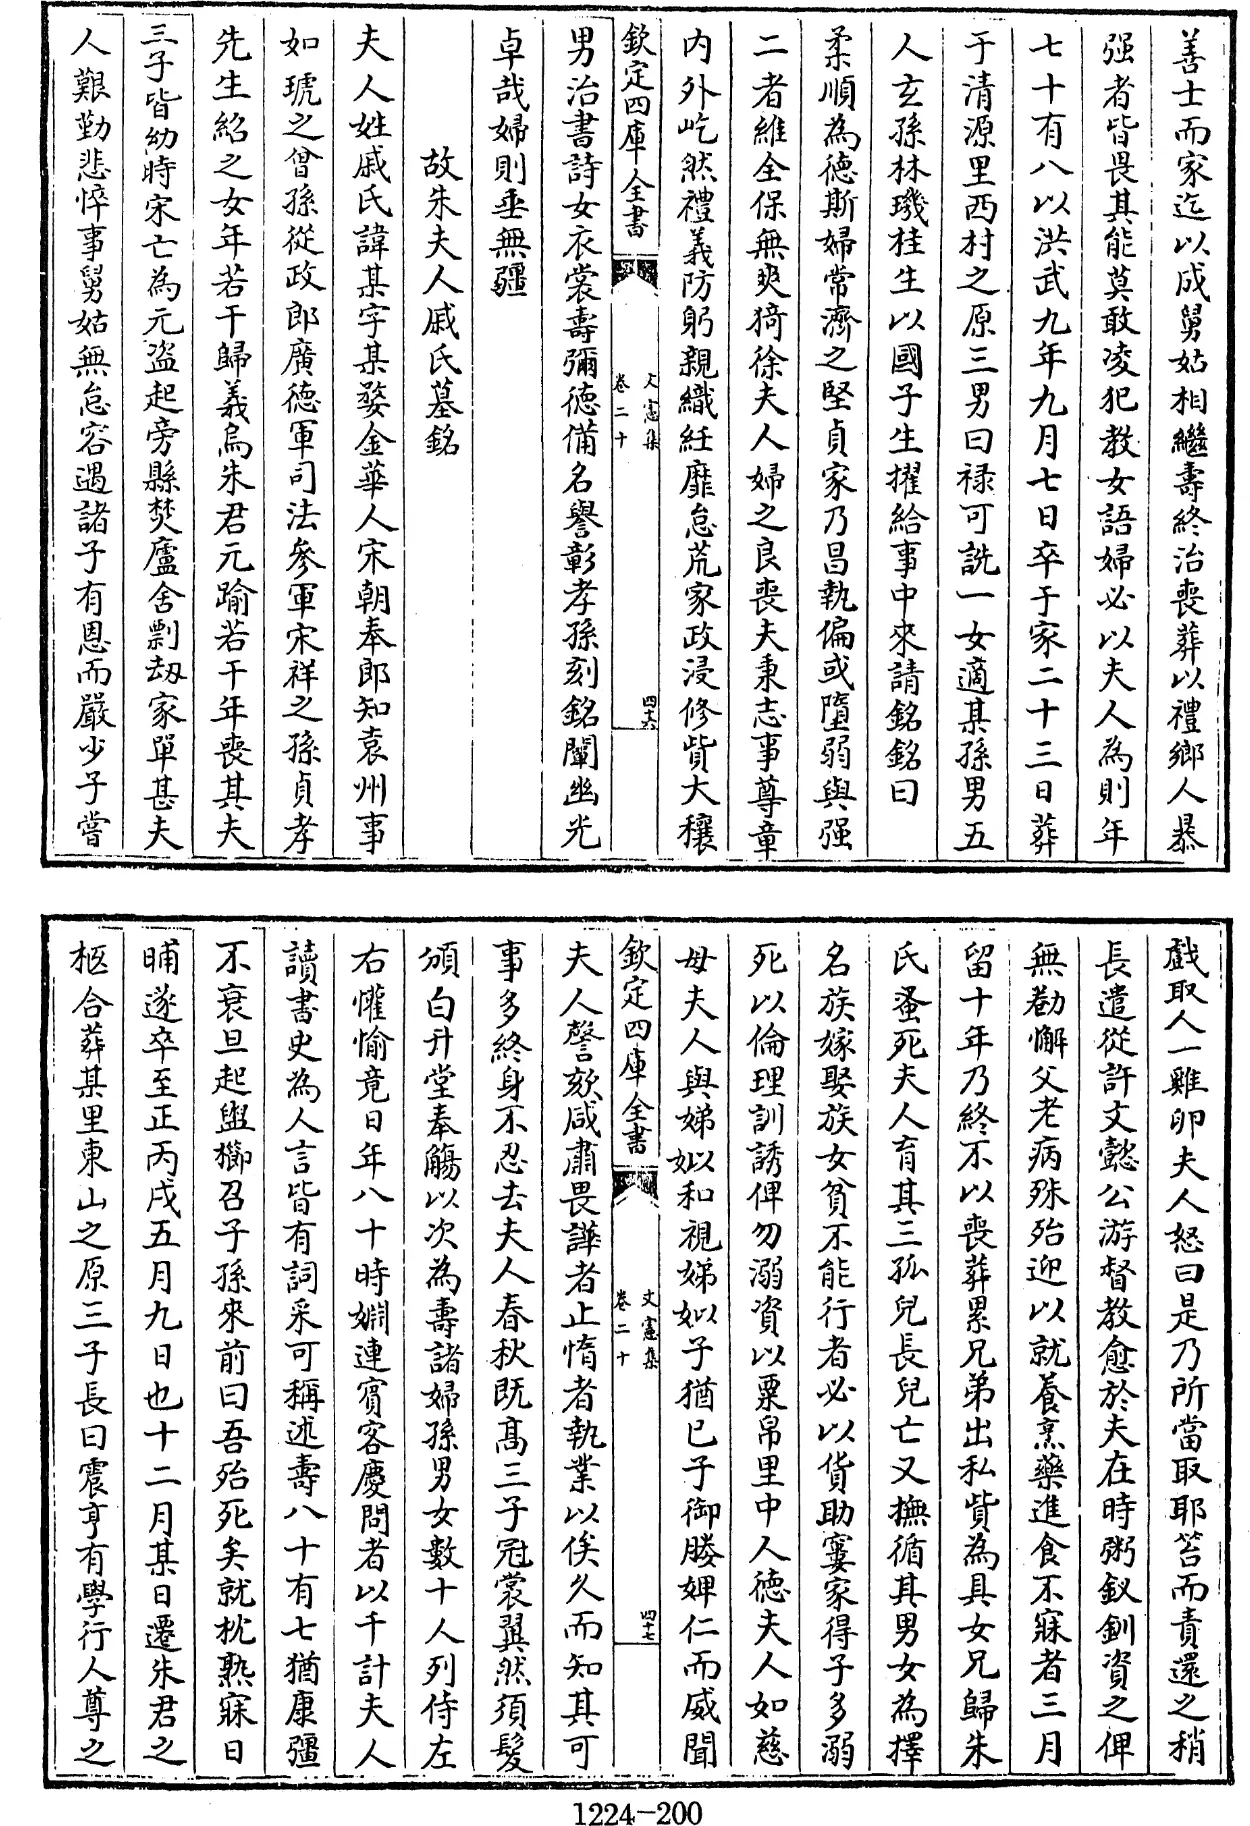 善士而家迄以成舅姑相繼壽終治喪葬以禮鄉人暴
强者皆畏其能莫敢凌犯教女語婦必以夫人為則年
七十有八以洪武九年九月七日卒于家二十三日葬
于清源里西村之原三男曰祿可詵一女適某孫男五
人玄孫林璣桂生以國子生擢給事中來請銘銘曰
柔順為德斯婦常濟之堅貞家乃昌執偏或墮弱與强
二者維全保無爽猗徐夫人婦之良喪夫秉志事尊章
内外屹然禮義防躬親織紝靡怠荒家政浸修貲大穰
欽定四庫全書
文憲集
卷二十
四十六
男治書詩女衣裳壽彌德備名譽彰孝孫刻銘闡幽光
卓哉婦則垂無疆
故朱夫人戚氏墓銘
夫人姓戚氏諱某字某婺金華人宋朝奉郎知袁州事
如琥之曾孫從政郎廣德軍司法參軍宋祥之孫貞孝
先生紹之女年若干歸義烏朱君元踰若干年喪其夫
三子皆幼時宋亡為元盜起旁縣焚廬舍剽刼家單甚夫
人艱勤悲悴事舅姑無怠容遇諸子有恩而嚴少子嘗
戲取人一雞卵夫人怒曰是乃所當取耶笞而責還之稍
長遣從許文懿公游督教愈於夫在時粥釵釧資之俾
無勌懈父老病殊殆迎以就養烹藥進食不寐者三月
留十年乃終不以喪葬累兄弟出私貲為具女兄歸朱
氏蚤死夫人育其三孤兒長兒亡又撫循其男女為擇
名族嫁娶族女貧不能行者必以貨助窶家得子多溺
死以倫理訓誘俾勿溺資以粟帛里中人德夫人如慈
母夫人與娣姒和視娣姒子猶已子御媵婢仁而威聞
欽定四庫全書
文憲集
卷二十
四十七
夫人謦欬咸肅畏譁者止惰者執業以俟久而知其可
事多終身不忍去夫人春秋既髙三子冠裳翼然須髮
頒白升堂奉觴以次為壽諸婦孫男女數十人列侍左
右懽愉竟日年八十時婣連賓客慶問者以千計夫人
讀書史為人言皆有詞采可稱述壽八十有七猶康彊
不衰旦起盥櫛召子孫來前曰吾殆死矣就枕熟寐日
晡遂卒至正丙戌五月九日也十二月某日遷朱君之
柩合葬某里東山之原三子長曰震亨有學行人尊之
1224-200